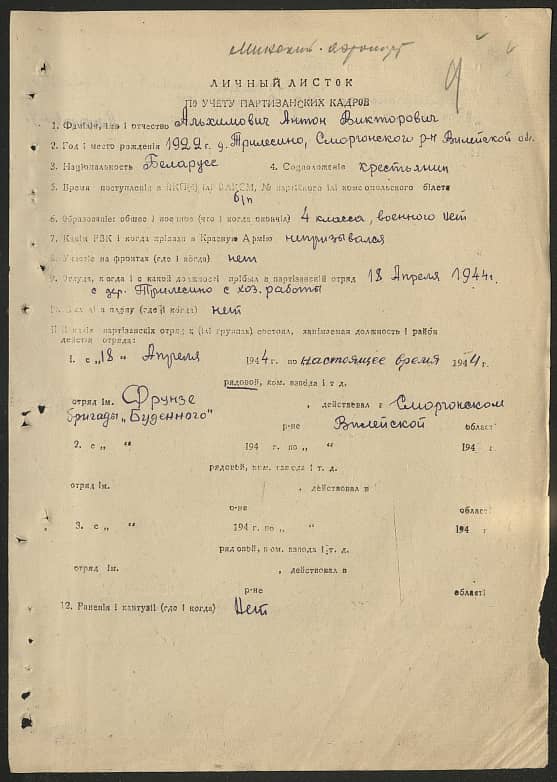 Минский аэропорт
ЛИЧНЫЙ ЛИСТОК
ПО УЧЕТУ ПАРТИЗАНСКИХ КАДРОВ
1. Фамилія, імя і отчество Альхимович Антон Викторович
2. Год і место рождения 1922 г. д. Трилесино, Сморгонского р-н Вилейской обл.
3. Національность Беларусс 4. Соцположеніе крестьянин
5. Время поступленія в ВКП(б) ілі ВЛКСМ, № партійного ілі комсомольского білета
б/п
6. Образованіе: общее і военное (что і когда окончіл) 4 класса, военного нет
7. Какім РВК і когда прізван в Красную Армію непризывался
8. Участіе на фронтах (где і когда) нет
9. Откуда, когда і с какой должності прібыл в партізанскій отряд 18 Апреля 1944 г.
с дер. Трилесино с хоз. работы
10. Был лі в плену (где і когда) нет
11. В какіх партізанскіх отрядах (ілі группах) состоял, занімаемая должность і район
действія отряда:
1. с „18" Апреля 1944 г. по настоящее время 1944 г.
рядовой, ком. взвода і т. д.
отряд ім. Фрунзе , действовал в Сморгонском
бригады „Буденного"
р-не Вилейской області
2. с „ “ 194 г. по „ “ 194 г.
рядовой, ком. взвода і т. д.
отряд ім. , действовал в
р-не області
3. с „ “ 194 г. по „ “ 194 г.
рядовой, ком. взвода і т. д.
отряд ім. , действовал в
р-не області
12. Раненія і контузіі (где і когда) Нет